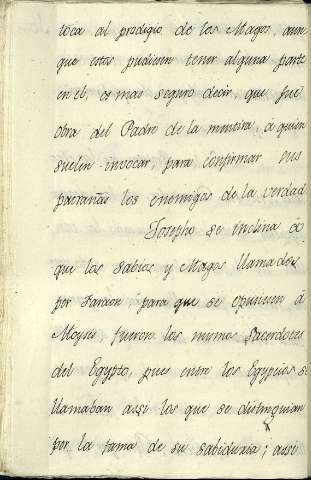 toca al prodigio de los Magos, aun
que estos pudiesen tener alguna parte
en el, es mas seguro decir, que fue
obra del Padre de la mentira, á quien
suelen invocar, para confirmar sus
patrañas los enemigos de la verdad
Josepho se inclina á
que los sabios y Magos llamados
por Faraon para que se opusiesen á
Moyses, fueron los mismos Sacerdotes
del Egypto, pues entre los Egypcios se
llamaban assi los que se distinguian
por la fama de su sabiduria; assi